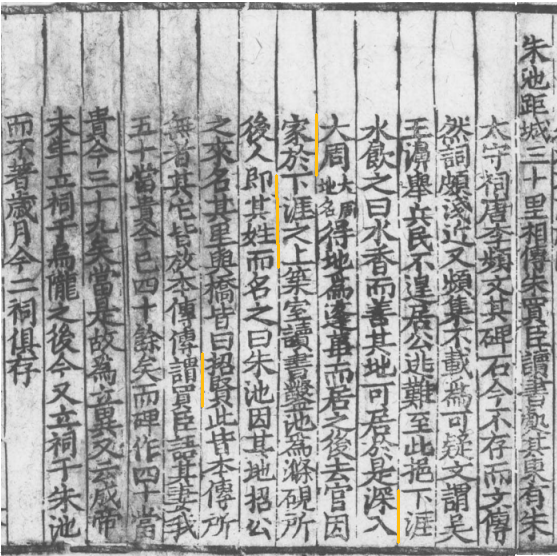 朱池距城三十里相傳朱買臣讀書處其東有朱
太守祠唐李頻文其碑石今不存而文傳
然詞頗淺近又頻集不載為可疑文謂吳
王濞舉兵民不遑居公逃難至此挹下涯
水飲之曰水香而善其地可居於是深入
大周大周地名得地為蓬蓽而居之後去官因
家於下涯之上築室讀書鑿池為滌硯所
後人即其姓而名之曰朱池因其地招公
之來名其里與橋皆曰招賢此皆本傳所
無者其它皆放本傳傳謂買臣語其妻我
五十當貴今已四十餘矣而碑作四十當
貴今三十九矣當是故為立異又云成帝
未年立祠于烏龍之後今又立祠于朱池
而不著歲月今二祠俱存